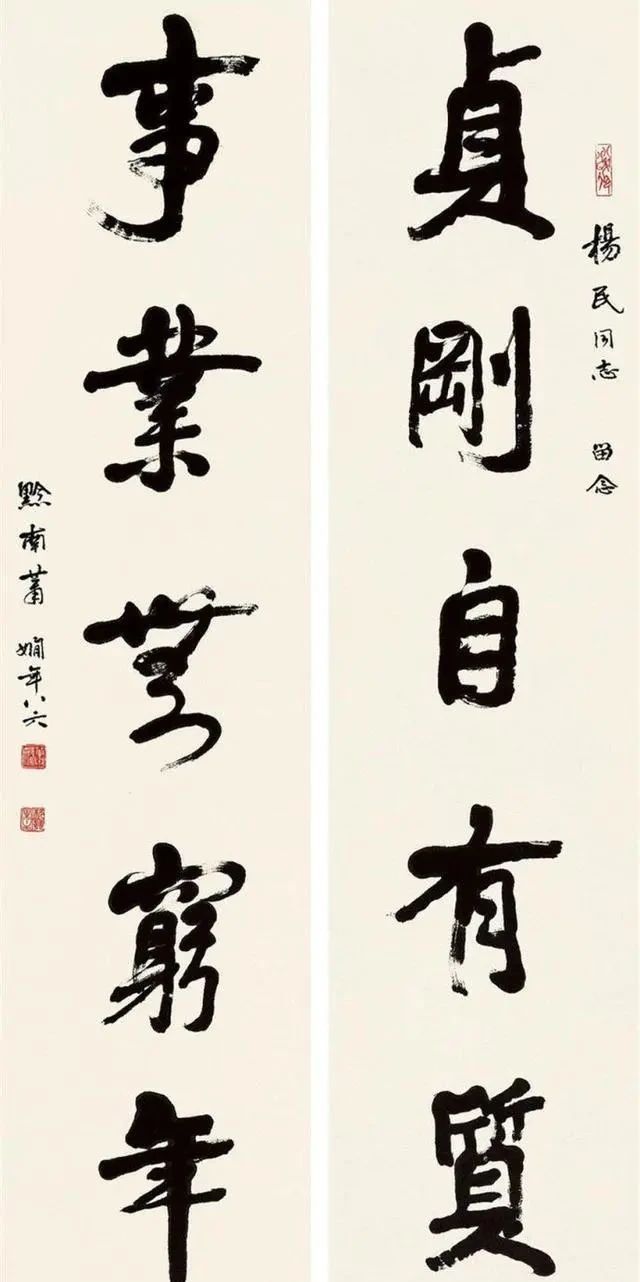 楊民同志 留念
貞剛自有質
事業無窮年
黔南蕭嫻年八六